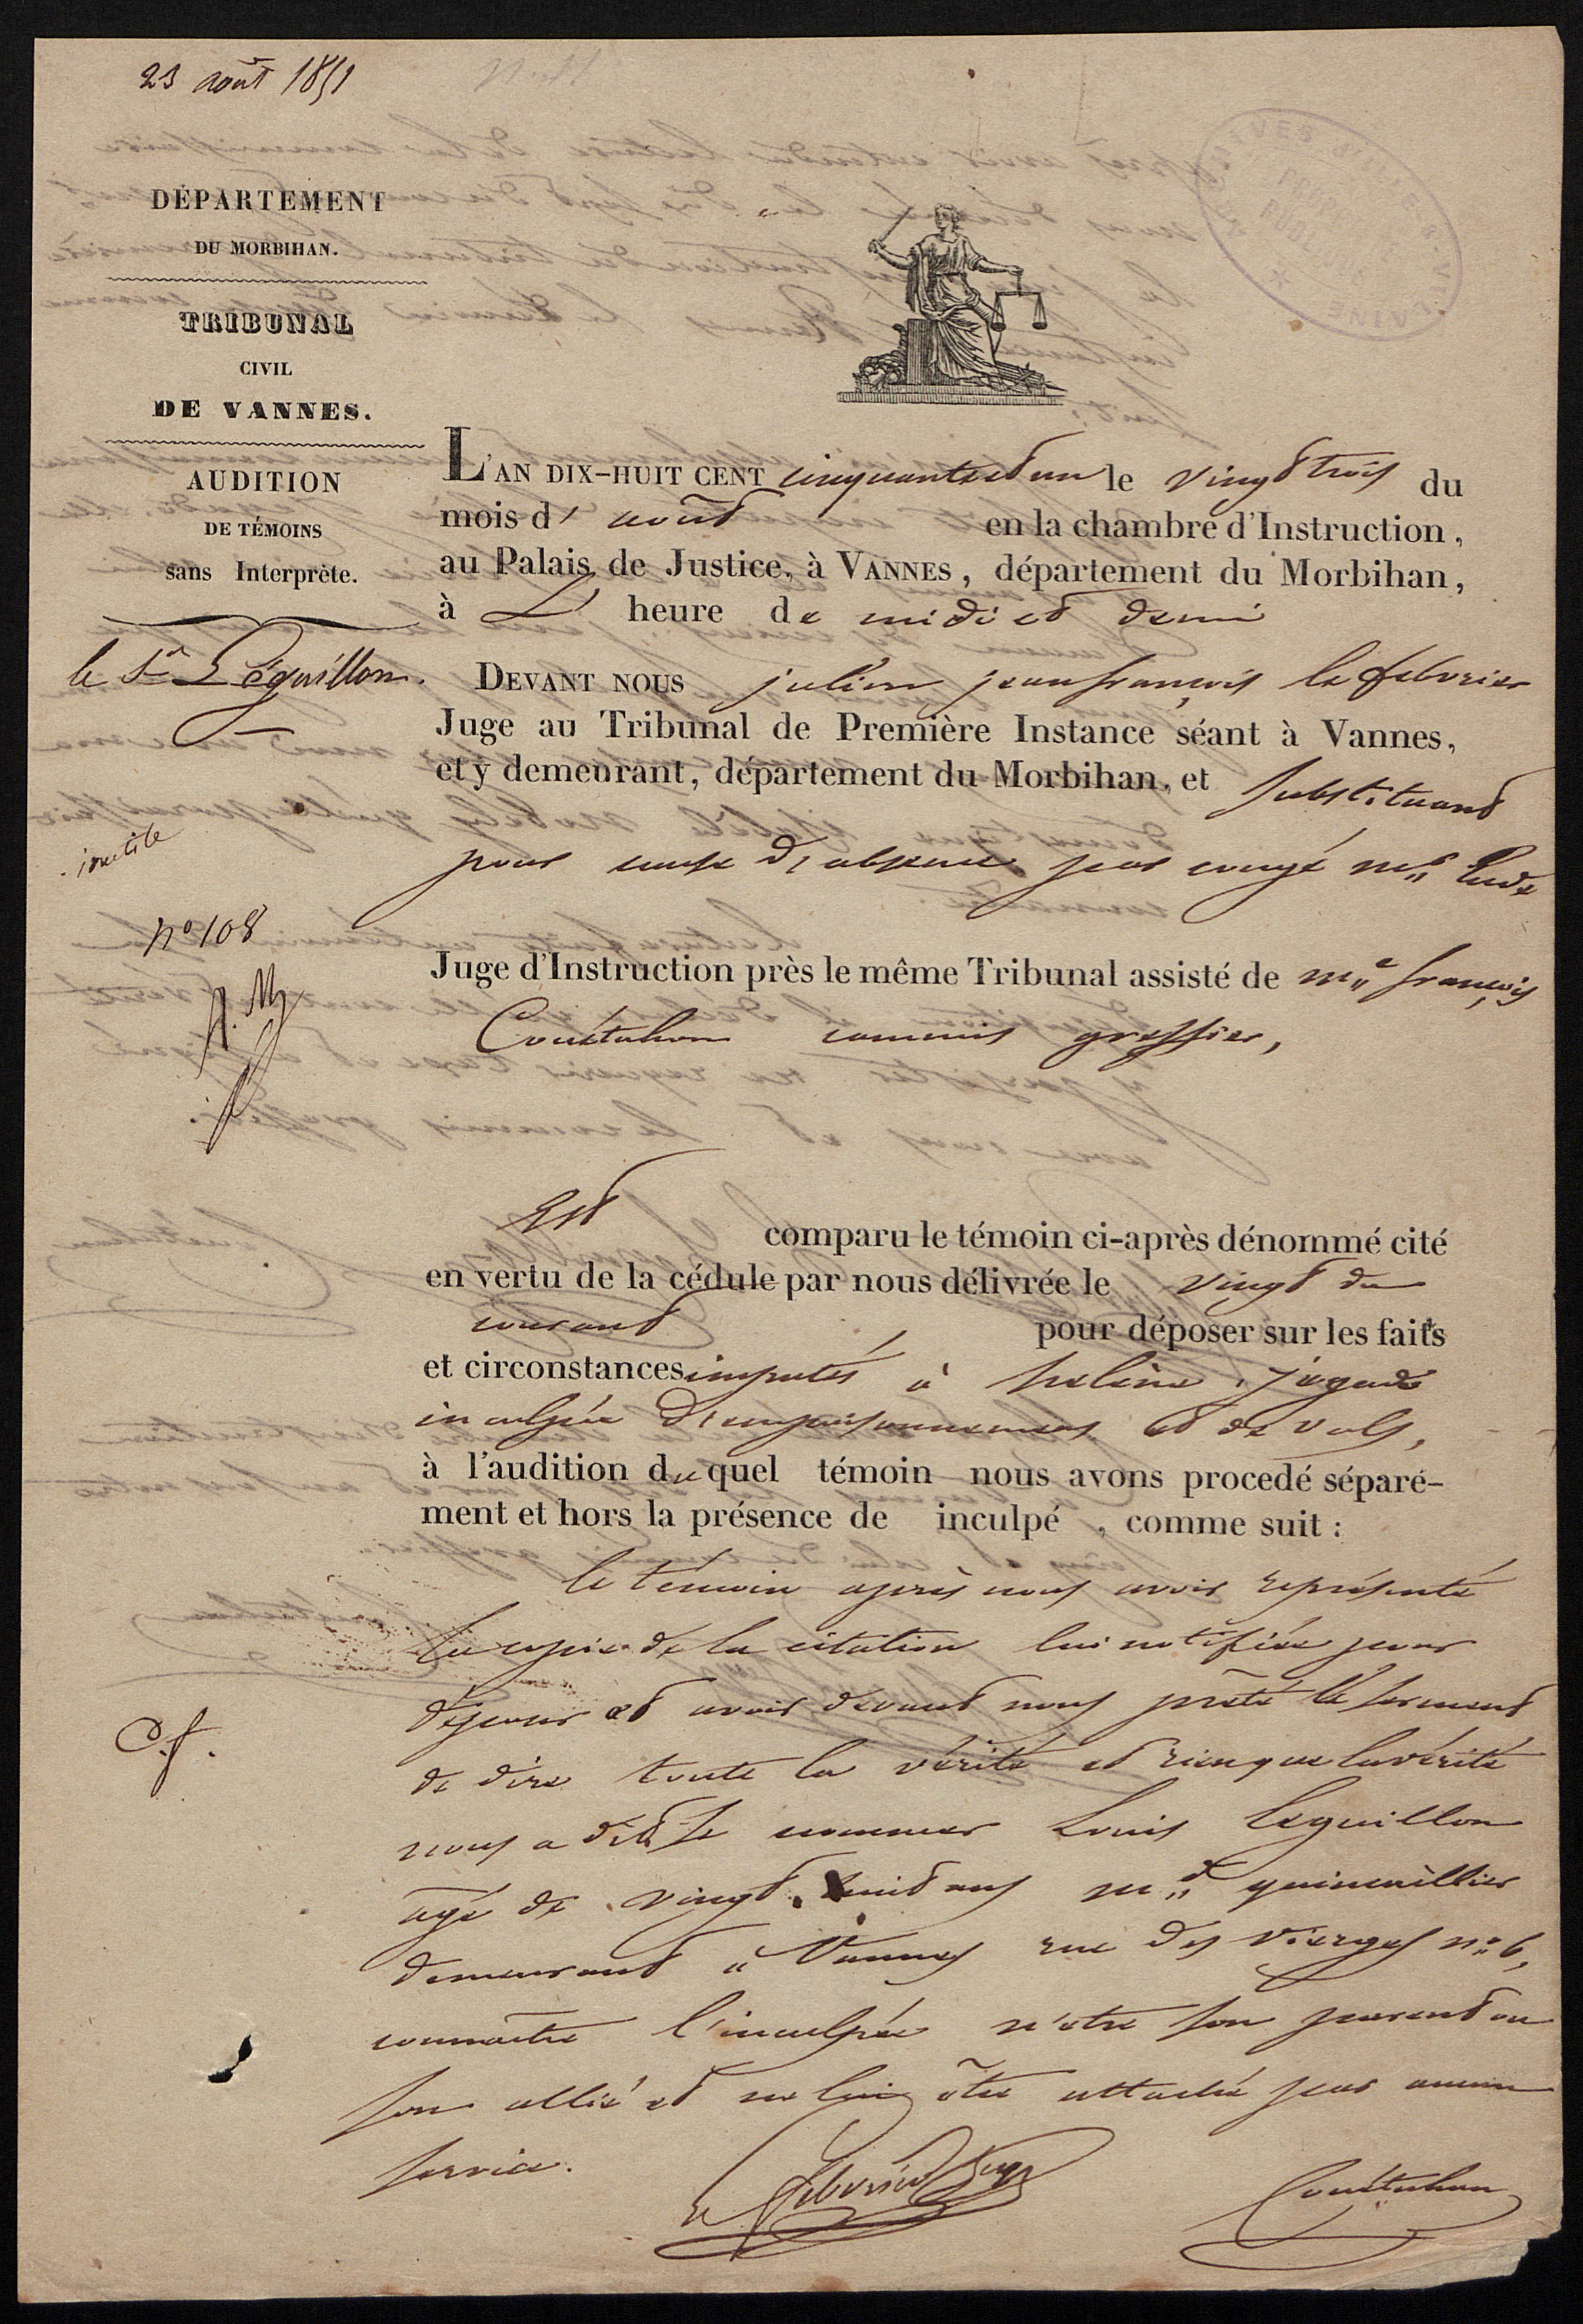 23 août 1851
DÉPARTEMENT
DU MORBIHAN.
TRIBUNAL
CIVIL
DE VANNES.
AUDITION
DE TÉMOINS
sans Interprète.
le Sr Léguillon.
inutile
n° 108
L'AN DIX-HUIT CENT cinquante et un le vingt trois du
mois d' août en la chambre d'Instruction,
au Palais de Justice, à VANNES, département du Morbihan,
à L' heure de midi et demi
DEVANT NOUS julien jean françois le febvrier
Juge au Tribunal de Première Instance séant à Vannes,
et y demeurant, département du Morbihan, et substituant
pour cause d'absence par congé
Juge d'Instruction près le même Tribunal assisté de Me françois
Couëtuhan commis greffier,
Est comparu le témoin ci-après dénommé cité
en vertu de la cédule par nous délivrée le vingt du
courant pour déposer sur les faits
et circonstances imputés à helène jégado
inculpée d'empoisonnements et de vols,
à l'audition du quel témoin nous avons procedé séparé-
ment et hors la présence de inculpé, comme suit :
le témoin après nous avoir représenté
la copie de la citation lui notifiée pour
déposer et avoir devant nous prêté le serment
de dire toute la vérité et rien que la vérité
nous a dit se nommer Louis Leguillon
âgé de vingt huit ans md quincaillier
demeurant à Vannes rue des vierges n° 6,
connaitre l'inculpée n'etre son parent ou
son allié et ne lui être attaché par aucun
service.
C.f.
Le febvrier Juge
Couëtuhan